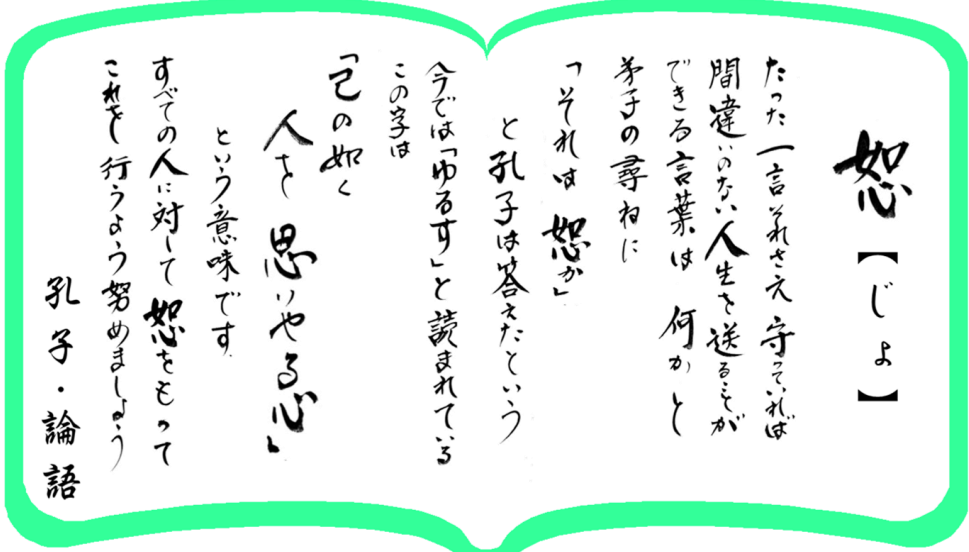 恕【じょ】
たった一言それさえ守っていれば
間違いのない人生を送ることが
できる言葉は何かと
弟子の尋ねに
「それは恕か」
と孔子は答えたという
今では「ゆるす」と読まれている
この字は
「己の如く
人を思いやる心」
という意味です
すべての人に対して恕をもって
これをし行うよう努めましょう
孔子・論語